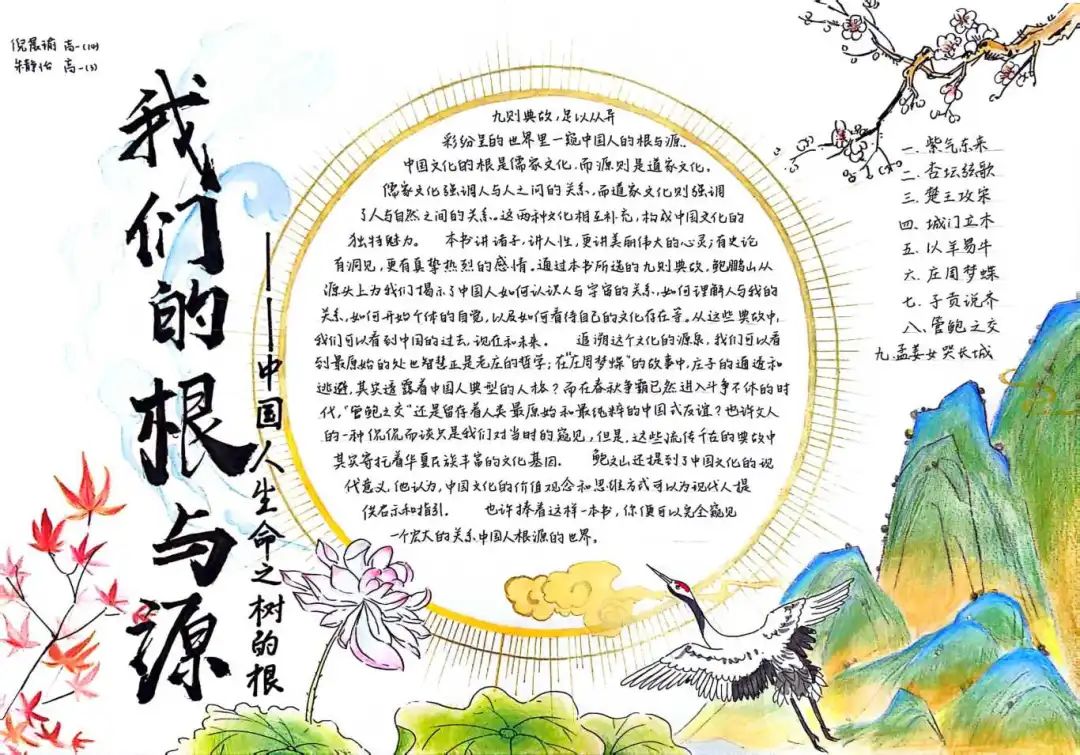 倪晨瑜 高一(10)
朱静怡 高一(3)
我们的根与源
——中国人生命之树的根
九则典故，足以从异
彩纷呈的世界里一窥中国人的根与源.
中国文化的根是儒家文化，而源则是道家文化。
儒家文化强调人与人之间的关系，而道家文化则强调
了人与自然之间的关系。这两种文化相互补充，构成中国文化的
独特魅力。 本书讲诸子，讲人性，更讲美丽伟大的心灵；有史论
有洞见，更有真挚热烈的感情。通过本书所选的九则典故，鲍鹏山从
源头上为我们揭示了中国人如何认识人与宇宙的关系，如何理解人与我的
关系，如何开始个体的自觉，以及如何看待自己的文化存在等。从这些典故中，
我们可以看到中国的过去，现在和未来。 追溯这个文化的源泉，我们可以看
到最原始的处世智慧正是老庄的哲学；在“庄周梦蝶”的故事中，庄子的通透和
逃避，其实透露着中国人典型的人格？而在春秋争霸已然进入斗争不休的时
代，“管鲍之交”还是留存着人类最原始和最纯粹的中国式友谊？也许文人
的一种侃侃而谈只是我们对当时的窥见，但是，这些流传千古的典故中
其实寄托着华夏民族丰富的文化基因。 鲍文山还提到了中国文化的现
代意义，他认为，中国文化的价值观念和思维方式可以为现代人提
供启示和指引。 也许捧着这样一本书，你便可以完全窥见
一个宏大的关系中国人根源的世界。
一、紫气东来
二、杏坛弦歌
三、楚王攻宋
四、城门立木
五、以羊易牛
六、庄周梦蝶
七、子贡说齐
八、管鲍之交
九、孟姜女哭长城